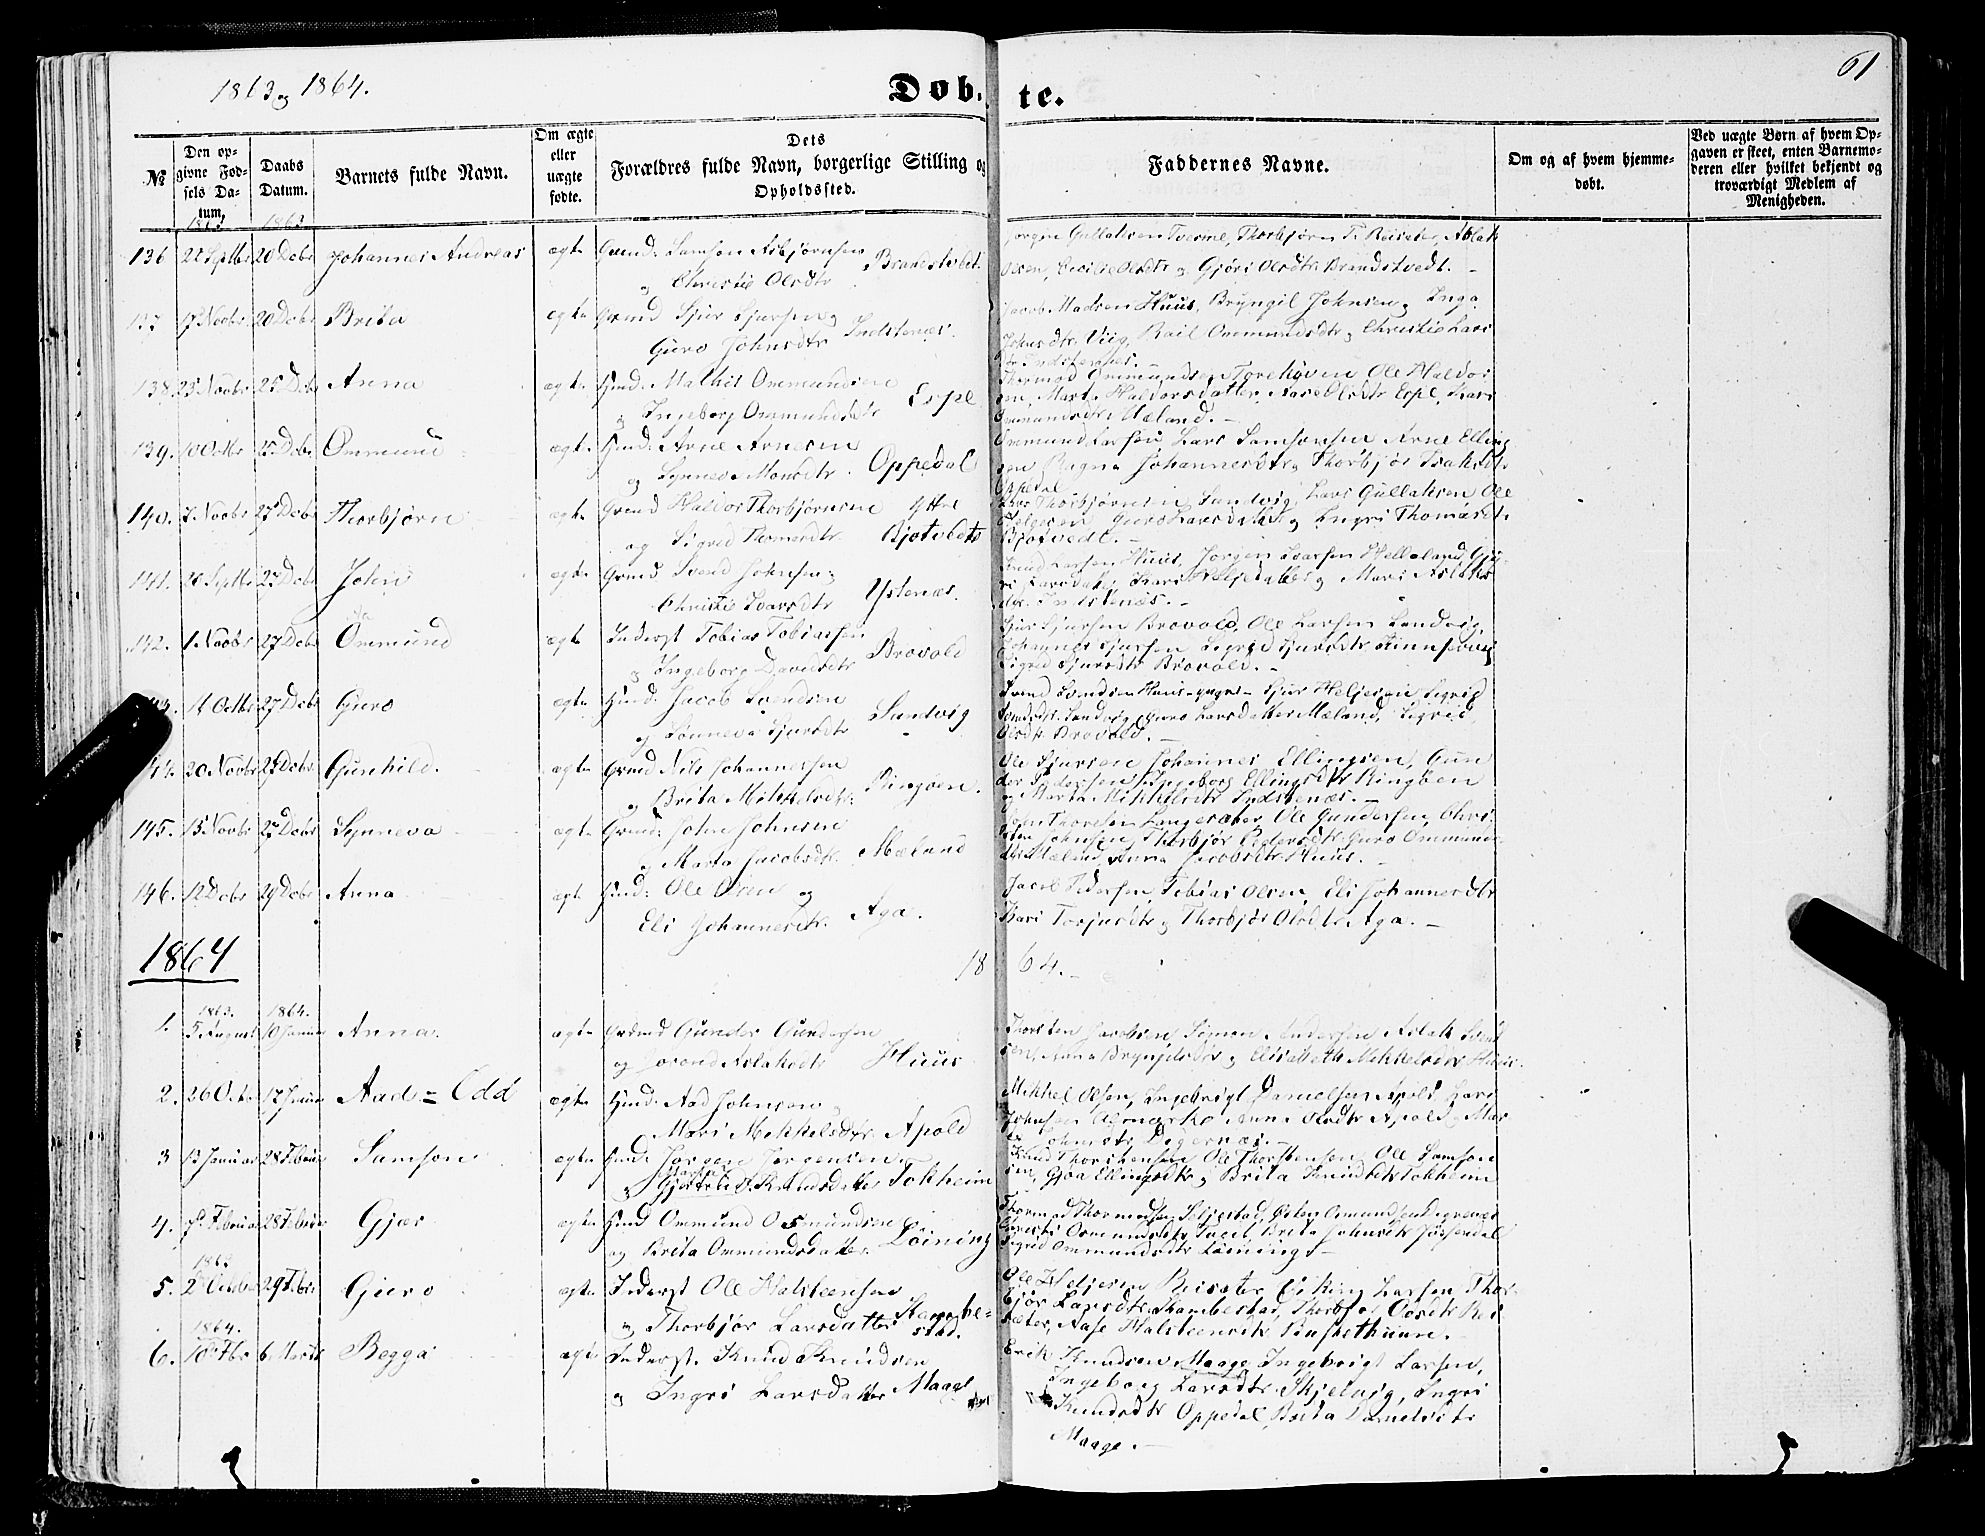 1863 og 1864.
Døb-
te.
61
№
Den op-
givne Fød-
sels Da-
tum.
Daabs
Datum.
Barnets fulde Navn.
Om ægte
eller
uægte
fødte.
Dets
Forældres fulde Navn, borgerlige Stilling og
Opholdssted.
Faddernes Navne.
Om og af hvem hjemme-
døbt.
Ved uægte Børn af hvem Op-
gaven er skeet, enten Barnemo-
deren eller hvilket bekjendt og
troværdigt Medlem af
Menigheden.
1863 1863
136 22 Septbr 20 Debr Johannes Andreas ægte Gmd: Samson Asbjørnsen
og Christie Olsdtr
Olsen, Cecilie Olsdtr og Gjøri Olsdtr Brandstvedt. -
137 17 Novbr 20 Debr Brita ægte Grmd Sjur Sjursen og
Guro Johnsdtr Indstenæs.
Jacob Madsen Huus, Bryngil Johnsen og Inga
Johnsdtr Viig, Ommundsdtr og Christie Lars
dtr Indstenæs
138 23 Novbr 25 Debr Anna ægte Hmd: Mathis Ommundsen
og Ingeborg Ommundsdtr Espe
Ommundsen Ole Haldor
sen, Marta Haldorsdatter, Aase Olsdtr Espe, Kari
Ommundsdtr Mæland. -
139. 10 Octbr 25 Debr Ommund ægte Hmd: Arne Arnesen
og Synneva Monsdtr. Oppedal
Ommund Larsen Lars Samsonsen Arne Elling
sen Ragna Johannesdtr og Thorbjør Isaksdtr
Oppedal
140. 7 Novbr 27 Debr Thorbjørn ægte Grmd Haldor Thorbjørnsen Ytre
og Sigrid Thomasdtr Bjotvedt
Lars Thorbjørnsen Sandvig, Lars Gullaksen Ole
Helgesen Guro Larsdatter og Ingri Thomasdtr
Bjotvedt. -
141. 28 Septbr 27 Debr John ægte Grmd Svend Johnsen og
Christie Ivarsdtr Ystenæs.
Knud Larsen Huus, Jørgen Ivarsen Helleland,
Mari Aslaks
dtr. Indstenæs. -
142. 1 Novbr 27 Debr Ommund ægte Inderst Tobias Tobiassen
og Ingeborg Davidsdtr Brovold
Sjur Sjursen Brovold, Ole Larsen Sandvig,
Johannes Sjursen, Sigrid Sjursdtr
Sigrid Sjursdtr Brovold. -
11 Octbr 27 Debr Guro ægte Hmd: Jacob Svendsen
og Sønneva Sjursdtr Sandvig
Svend Svendsen Huus Sjur Heljesen Sigrid
Sandvig, Guro Larsdatter Mæland, Sigrid
Olsdtr Brovold. -
20 Novbr 27 Debr Gunhild. ægte Grmd Nils Johannessen
og Brita Mikkelsdtr. Ringøen.
Ole Sjursen Johannes Ellingsen, Gun
der Pedersen, Ingeborg Ellingsdtr Ringøen
og Marta Mikkelsdtr Indstenæs. -
145. 15 Novbr 27 Debr Synneva ægte Grmd: John Johnsen
og Marta Jacobsdtr. Mæland
John Thoresen Langesæter, Ole Gundersen, Chri
sten Johnsen, Thorbjør Pedersdtr Guro Ommunds-
dtr Mæland, Anna Jacobsdtr Huus. -
146. 12 Debr 29 Debr Anna ægte Hmd: Ole Olsen og
Eli Johannesdtr. Aga.
Jacob Pedersen, Tobias Olsen, Eli Johannesdtr
Kari Torjusdtr og Thorbjør Olsdtr Aga. -
1864 18 64. -
1863. 1864.
1. 5 August 10 Januar Anna. ægte Grdmd Gunder Gundersen
og Aslaksdtr Huus
Thorsten Jacobsen, Simon Andersen Aslak Svend
sen, Anna Bryngelsdtr og Elisabeth Mikkelsdtr Huus.
2. 26 Octbr 17 Januar Aad = Odd ægte Hmd: Aad Johnsen og
Mari Mikkelsdtr. Apold
Mikkel Olsen, Ingebrigt Danielsen Apold, Lars
Johnsen Anna Olsdtr Apold, Mar
Johnsdtr Digernæs. -
3 13 Januar 28 Februar Samson ægte Hmd: Jørgen Jørgensen og
Knudsdatter Tokheim
Knud Thorstensen Ole Thorstensen Ole Samson
sen, Gjøa Ellingsdtr og Brita Knudsdtr Tokheim
4. 7 Februar 28 Februar Gjær ægte Hmd Ommund Osmundsen
og Brita Ommundsdatter. Løining
Thormod Thormodsen Seljestad, Østen
Osmundsdtr Brita Johnsdtr Jøssendal
Sigrid Ommundsdtr Løining. -
1863
5. 2 Octbr 29 Fbr Guro ægte Inderst Ole Halstensen
og Thorbjør Larsdatter Skambe-
stad.
Ole Heljesen Reisæter, Viking Larsen, Thor-
bjør Larsdtr Skambestad, Thorbjør Olsdtr Rei
sæter, Aase Halstensdtr
1864.
6. 18 Fbr 6 Marts Begga ægte Inderst. Knud Knudsen
og Ingri Larsdatter Maage
Erik Knudsen Maage Ingebrigt Larsen,
Ingeborg Larsdtr Skjelvig, Ingri
Knudsdtr Oppedal, Brita Danielsdtr
Maage. -